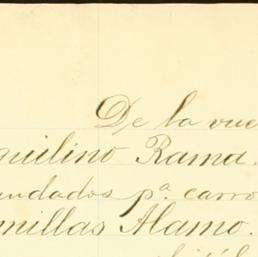 De la vue
quilino Rama.
undados pª. carro
millas Alamo.